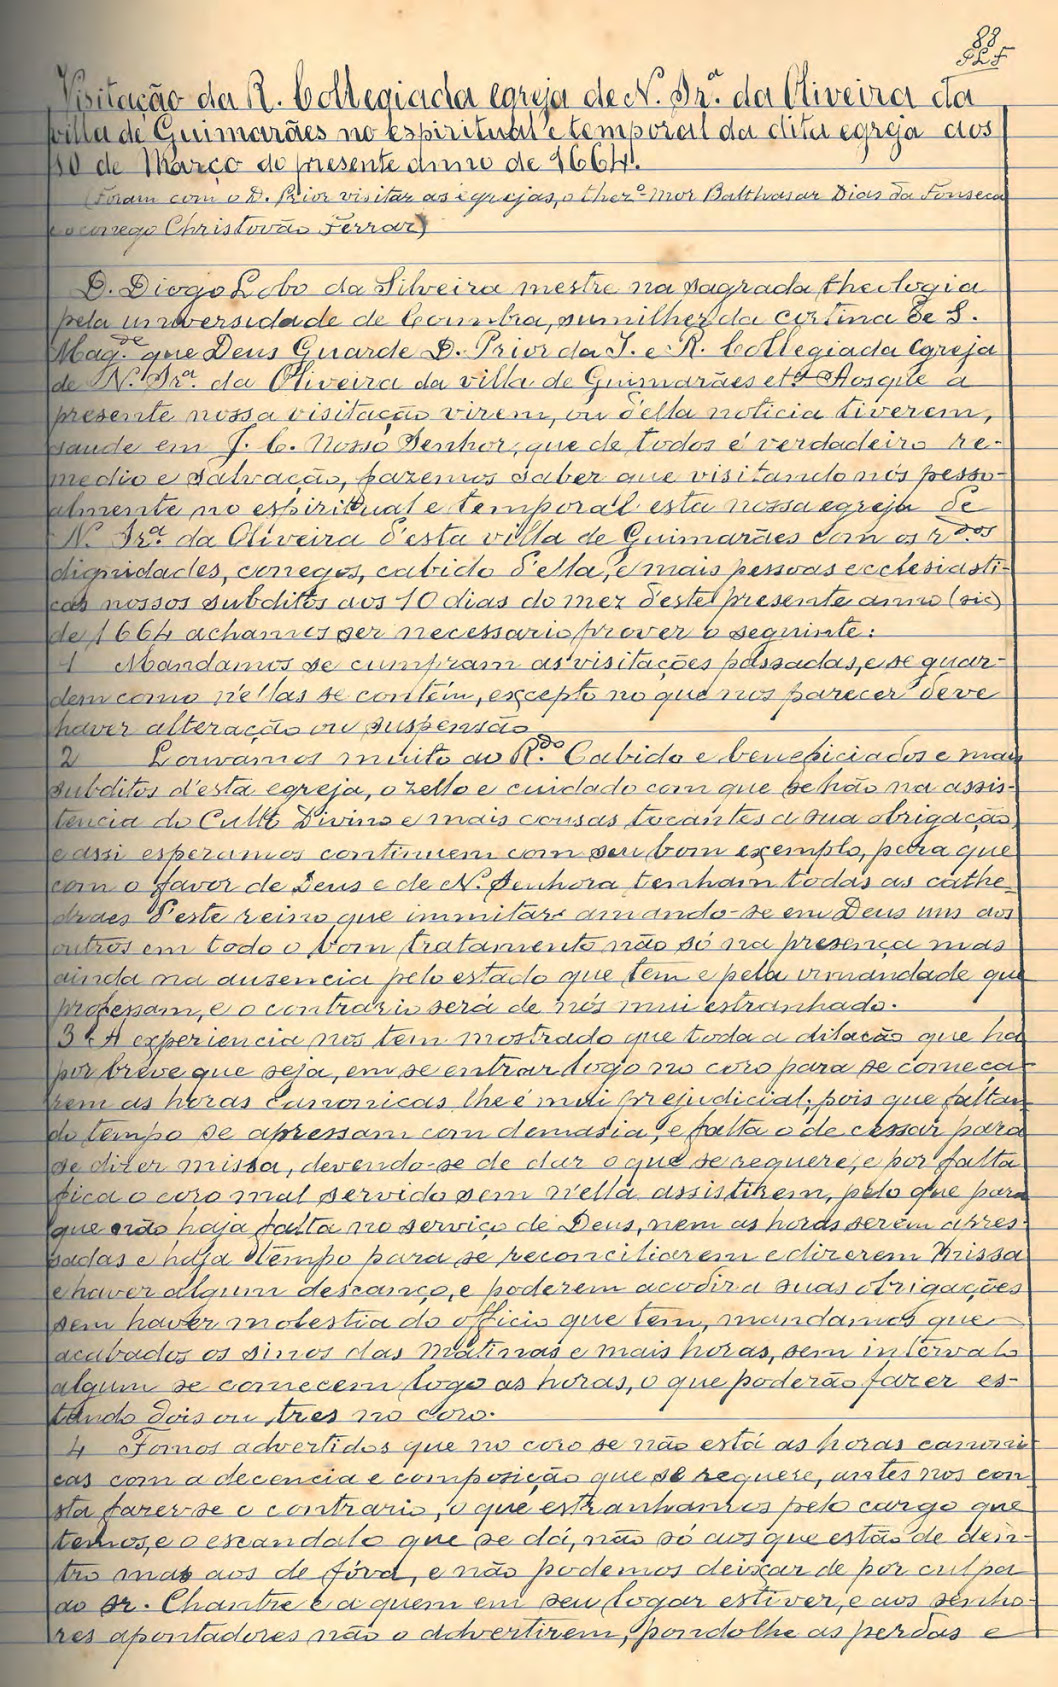 88
Visitação da R. Collegiada egreja de N. Srª. da Oliveira da
villa de Guimarães no espiritual e temporal da dita egreja aos
10 de Março do presente anno de 1664.
(Foram com o D. Prior visitar as egrejas, o thezº-mor Balthasar Dias da Fonseca
e o conego Christovão Ferrar)
D. Diogo Lobo da Silveira mestre na sagrada theologia
pela universidade de Coimbra, sumilher da cortina de S.
Mag.de que Deus Guarde D. Prior da I. e R. Collegiada Egreja
de N. Srª. da Oliveira da villa de Guimarães etª Aos que a
presente nossa visitação virem, ou d'ella noticia tiverem,
saude em J. C. Nosso Senhor, que de todos é verdadeiro re-
medio e salvação, fazemos saber que visitando nós pesso-
almente no espiritual e temporal esta nossa egreja de
N. Srª. da Oliveira d'esta villa de Guimarães com os r.dos
dignidades, conegos, cabido d'ella, e mais pessoas ecclesiasti-
cas nossos subditos aos 10 dias do mez d'este presente anno (sic)
de 1664 achamos ser necessario prover o seguinte:
1 Mandamos se cumpram as visitações passadas, e se guar-
dem como n'ellas se contém, excepto no que nos parecer deve
haver alteração ou suspensão
2 Louvamos muito ao R.do Cabido e beneficiados e mais
subditos d'esta egreja, o zello e cuidado com que se hão na assis-
tencia do Culto Divino e mais cousas tocantes a sua obrigação,
e assi esperamos continuem com seu bom exemplo, para que
com o favor de Deus e de N. Senhora tenham todas as cathe-
draes d'este reino que immitar amando-se em Deus uns aos
outros em todo o bom tratamento não só na presença mas
ainda na ausencia pelo estado que tem e pela irmandade que
professam, e o contrario será de nós mui estranhado.
3 A experiencia nos tem mostrado que toda a dilação que ha
por breve que seja, em se entrar logo no coro para se começa-
rem as horas canonicas lhe é mui prejudicial; pois que faltan-
do tempo se apressam com demasia, e falta o de cessar para
se dizer missa, devendo-se de dar o que se requere, e por falta
fica o coro mal servido sem n'ella assistirem, pelo que para
que não haja falta no serviço de Deus, nem as horas serem apres-
sadas e haja tempo para se reconciliarem e dizerem Missa
e haver algum descanço, e poderem acodir a suas obrigações
sem haver molestia do officio que tem, mandamos que
acabados os sinos das Matinas e mais horas, sem intervalo
algum se comecem logo as horas, o que poderão fazer es-
tando dois ou tres no coro.
4 Fomos advertidos que no coro se não está as horas canoni-
cas com a decencia e composição que se requere, antes nos con-
sta fazer-se o contrario, o que estranhamos pelo cargo que
temos, e o escandalo que se dá, não só aos que estão de den-
tro mas aos de fóra, e não podemos deixar de por culpa
ao sr. Chantre e a quem em seu logar estiver, e aos senho-
res apontadores não o advertirem, pondolhe as perdas e